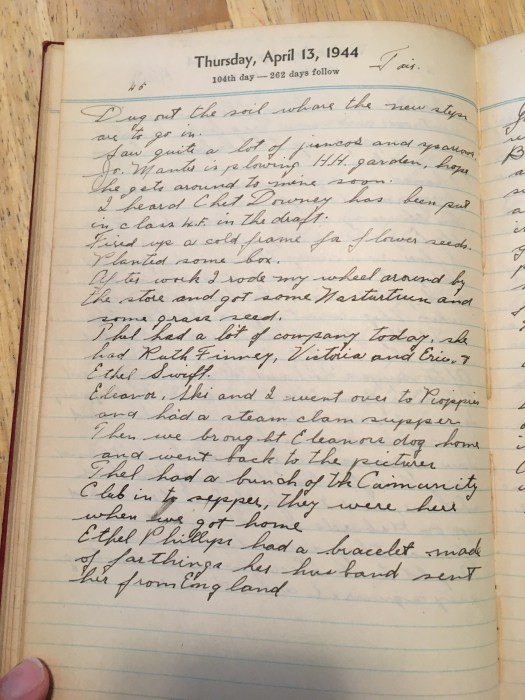 Thursday, April 13, 1944
Fair.
104th day — 262 days follow
45
Dug out the soil whare the new steps
are to go in.
Saw quite a lot of juncos and sparrows.
Jr. Mantis is plowing H.H. garden, hope
he gets around to mine soon.
I heard Chet Downey has been put
in class 4F. in the draft.
Fired up a cold frame for flower seeds.
Planted some box.
After work I rode my wheel around by
the store and got some Nasturtium and
some grass seed.
Thel had a lot of company today, she
had Ruth Finney, Victoria and Eric, &
Ethel Swift.
Eleanor, Ski and I went over to
and had a steam clam supper
Then we brought Eleanors dog home
and went back to the pictures
Thel had a bunch of the Community
Club in to supper, they were here
when we got home
Ethel Phillips had a bracelet made
of farthings her husband sent
her from England